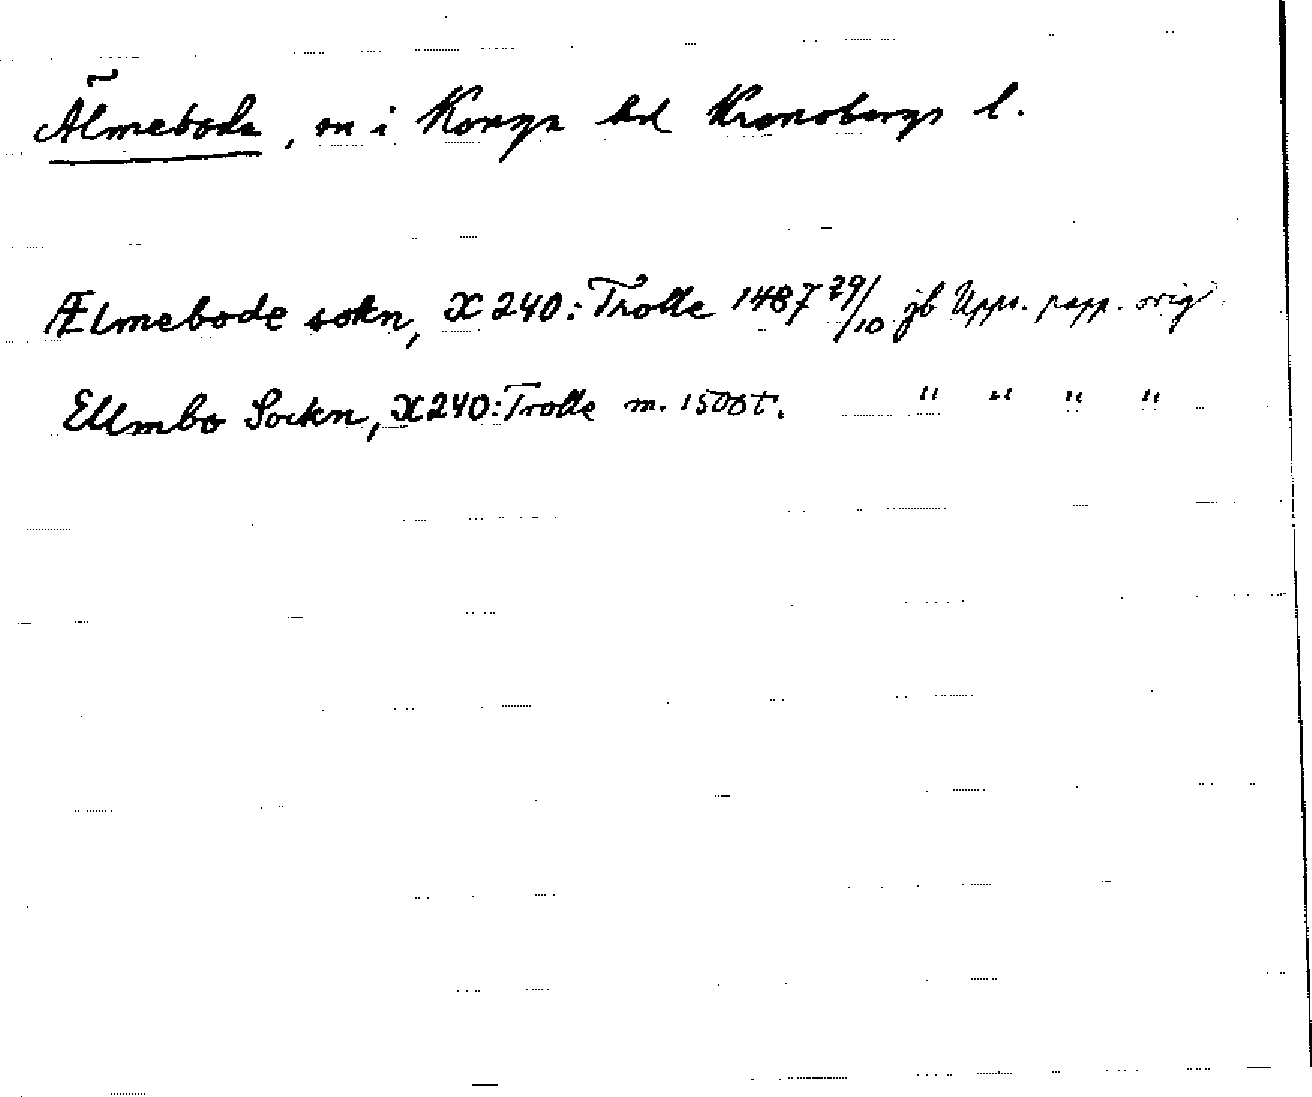 Älmeboda, sn i Konga hd Kronobergs l.
Ælmebode sokn, X 240: Trolle 1487 29/10 jb Upps. papp. orig
Ellmbo Sockn, X 240: Trolle m. 1500t. " " " "